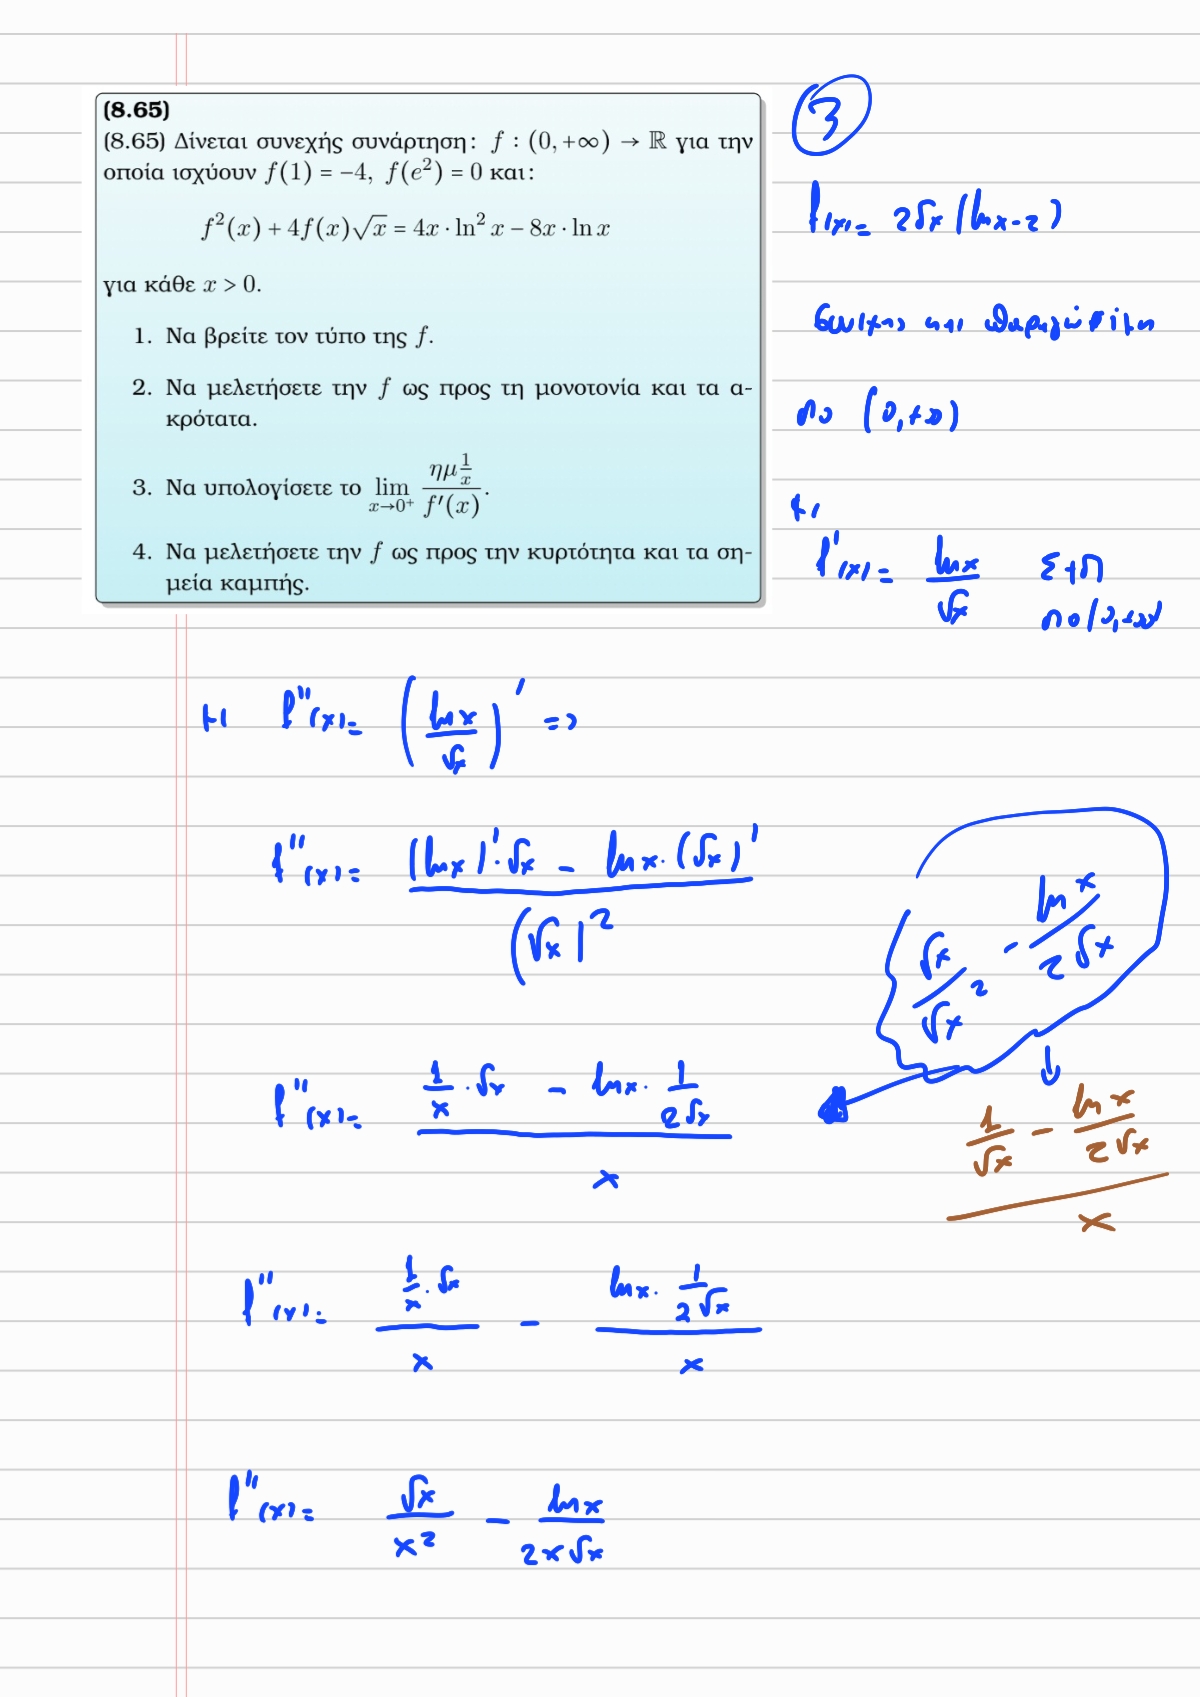 (8.65)
(8.65) Δίνεται συνεχής συνάρτηση: f : (0, +∞) → ℝ για την
οποία ισχύουν f(1) = −4, f(e²) = 0 και:
f²(x) + 4f(x)√x = 4x · ln² x − 8x · ln x
για κάθε x > 0.
1. Να βρείτε τον τύπο της f.
2. Να μελετήσετε την f ως προς τη μονοτονία και τα α-
κρότατα.
3. Να υπολογίσετε το lim_{x→0⁺} (ημ(1/x))/(f′(x)).
4. Να μελετήσετε την f ως προς την κυρτότητα και τα ση-
μεία καμπής.
3
f(x) = 2√x (lnx - 2)
συνεχης και παραγωγίσιμη
στο (0, +∞)
H
f'(x) = lnx/√x Σ+Π
στο (0, +∞)
H f''(x) = (lnx/√x)' =>
f''(x) = ((lnx)'·√x - lnx·(√x)')/(√x)²
√x/√x² - lnx/2√x
f''(x) = (1/x · √x - lnx · 1/2√x)/x
(1/√x - lnx/2√x)/x
f''(x) = (1/x · √x)/x - (lnx · 1/2√x)/x
f''(x) = √x/x² - lnx/2x√x